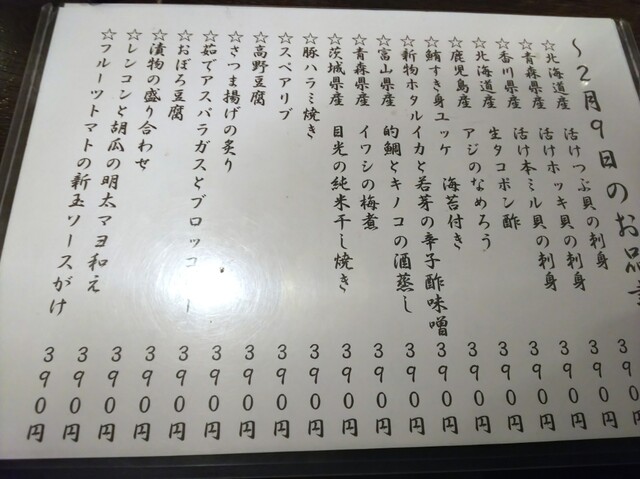 ～2月9日のお品
☆北海道産 活けつぶ貝の刺身 390円
☆青森県産 活けホッキ貝の刺身 390円
☆香川県産 活け本ミル貝の刺身 390円
☆北海道産 生タコポン酢 390円
☆鹿児島産 アジのなめろう 390円
☆鮪すき身ユッケ 海苔付き 390円
☆新物ホタルイカと若芽の辛子酢味噌 390円
☆富山県産 的鯛とキノコの酒蒸し 390円
☆青森県産 イワシの梅煮 390円
☆茨城県産 目光の純米干し焼き 390円
☆豚ハラミ焼き 390円
☆スペアリブ 390円
☆高野豆腐 390円
☆さつま揚げの炙り 390円
☆茹でアスパラガスとブロッコリー 390円
☆おぼろ豆腐 390円
☆漬物の盛り合わせ 390円
☆レンコンと胡瓜の明太マヨ和え 390円
☆フルーツトマトの新玉ソースがけ 390円